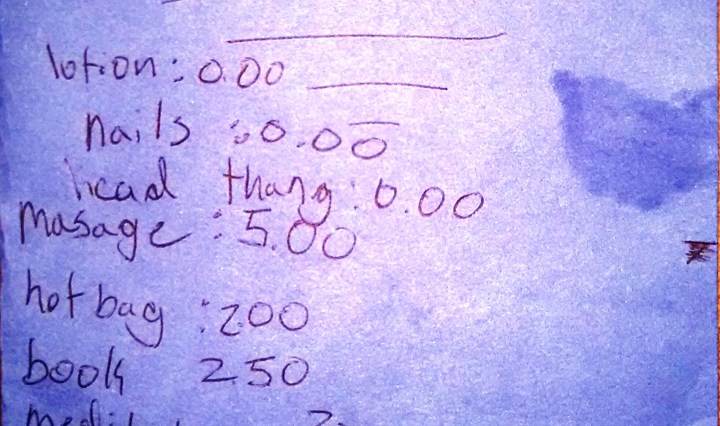 lotion: 0.00
nails : 0.00
head thang: 0.00
masage : 5.00
hot bag : 200
book 250